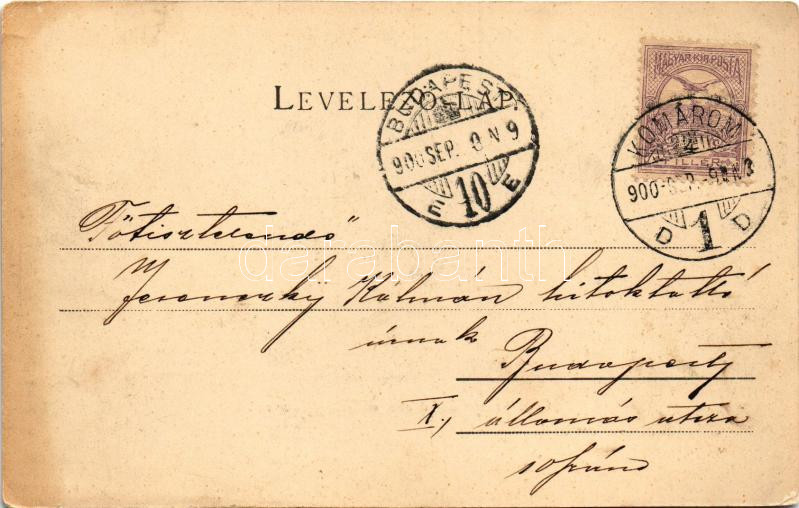 MAGYAR KIR. POSTA
LEVELEZŐ-LAP.
BUDAPEST
900 SEP. 9 N 9
10
E E
KOMÁROM
900 SEP. N 3
D 1 D
FILLÉR
"Főtisztelendő"
Kálmán hitoktató
úrnak
Budapest
X., állomás utcza
darabanth